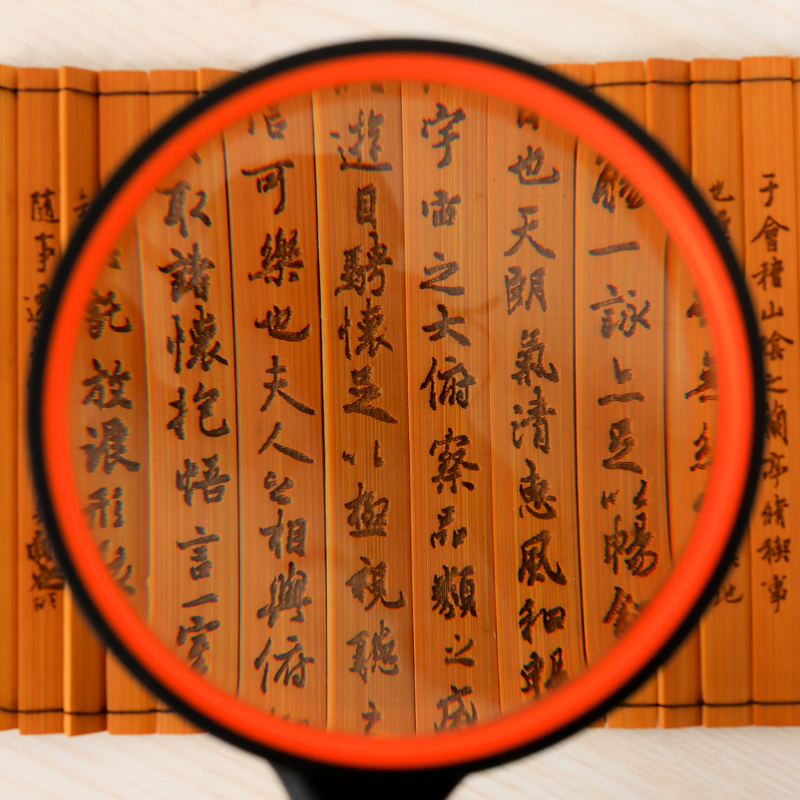 于會稽山陰之蘭亭脩稧事
也
無絲
觴一詠亦足以暢叙
也天朗氣清惠風和暢
宇宙之大俯察品類之盛
遊目騁懷足以極視聽之
信可樂也夫人之相與俯
取諸懷抱悟言一室
託放浪形骸
隨事遷